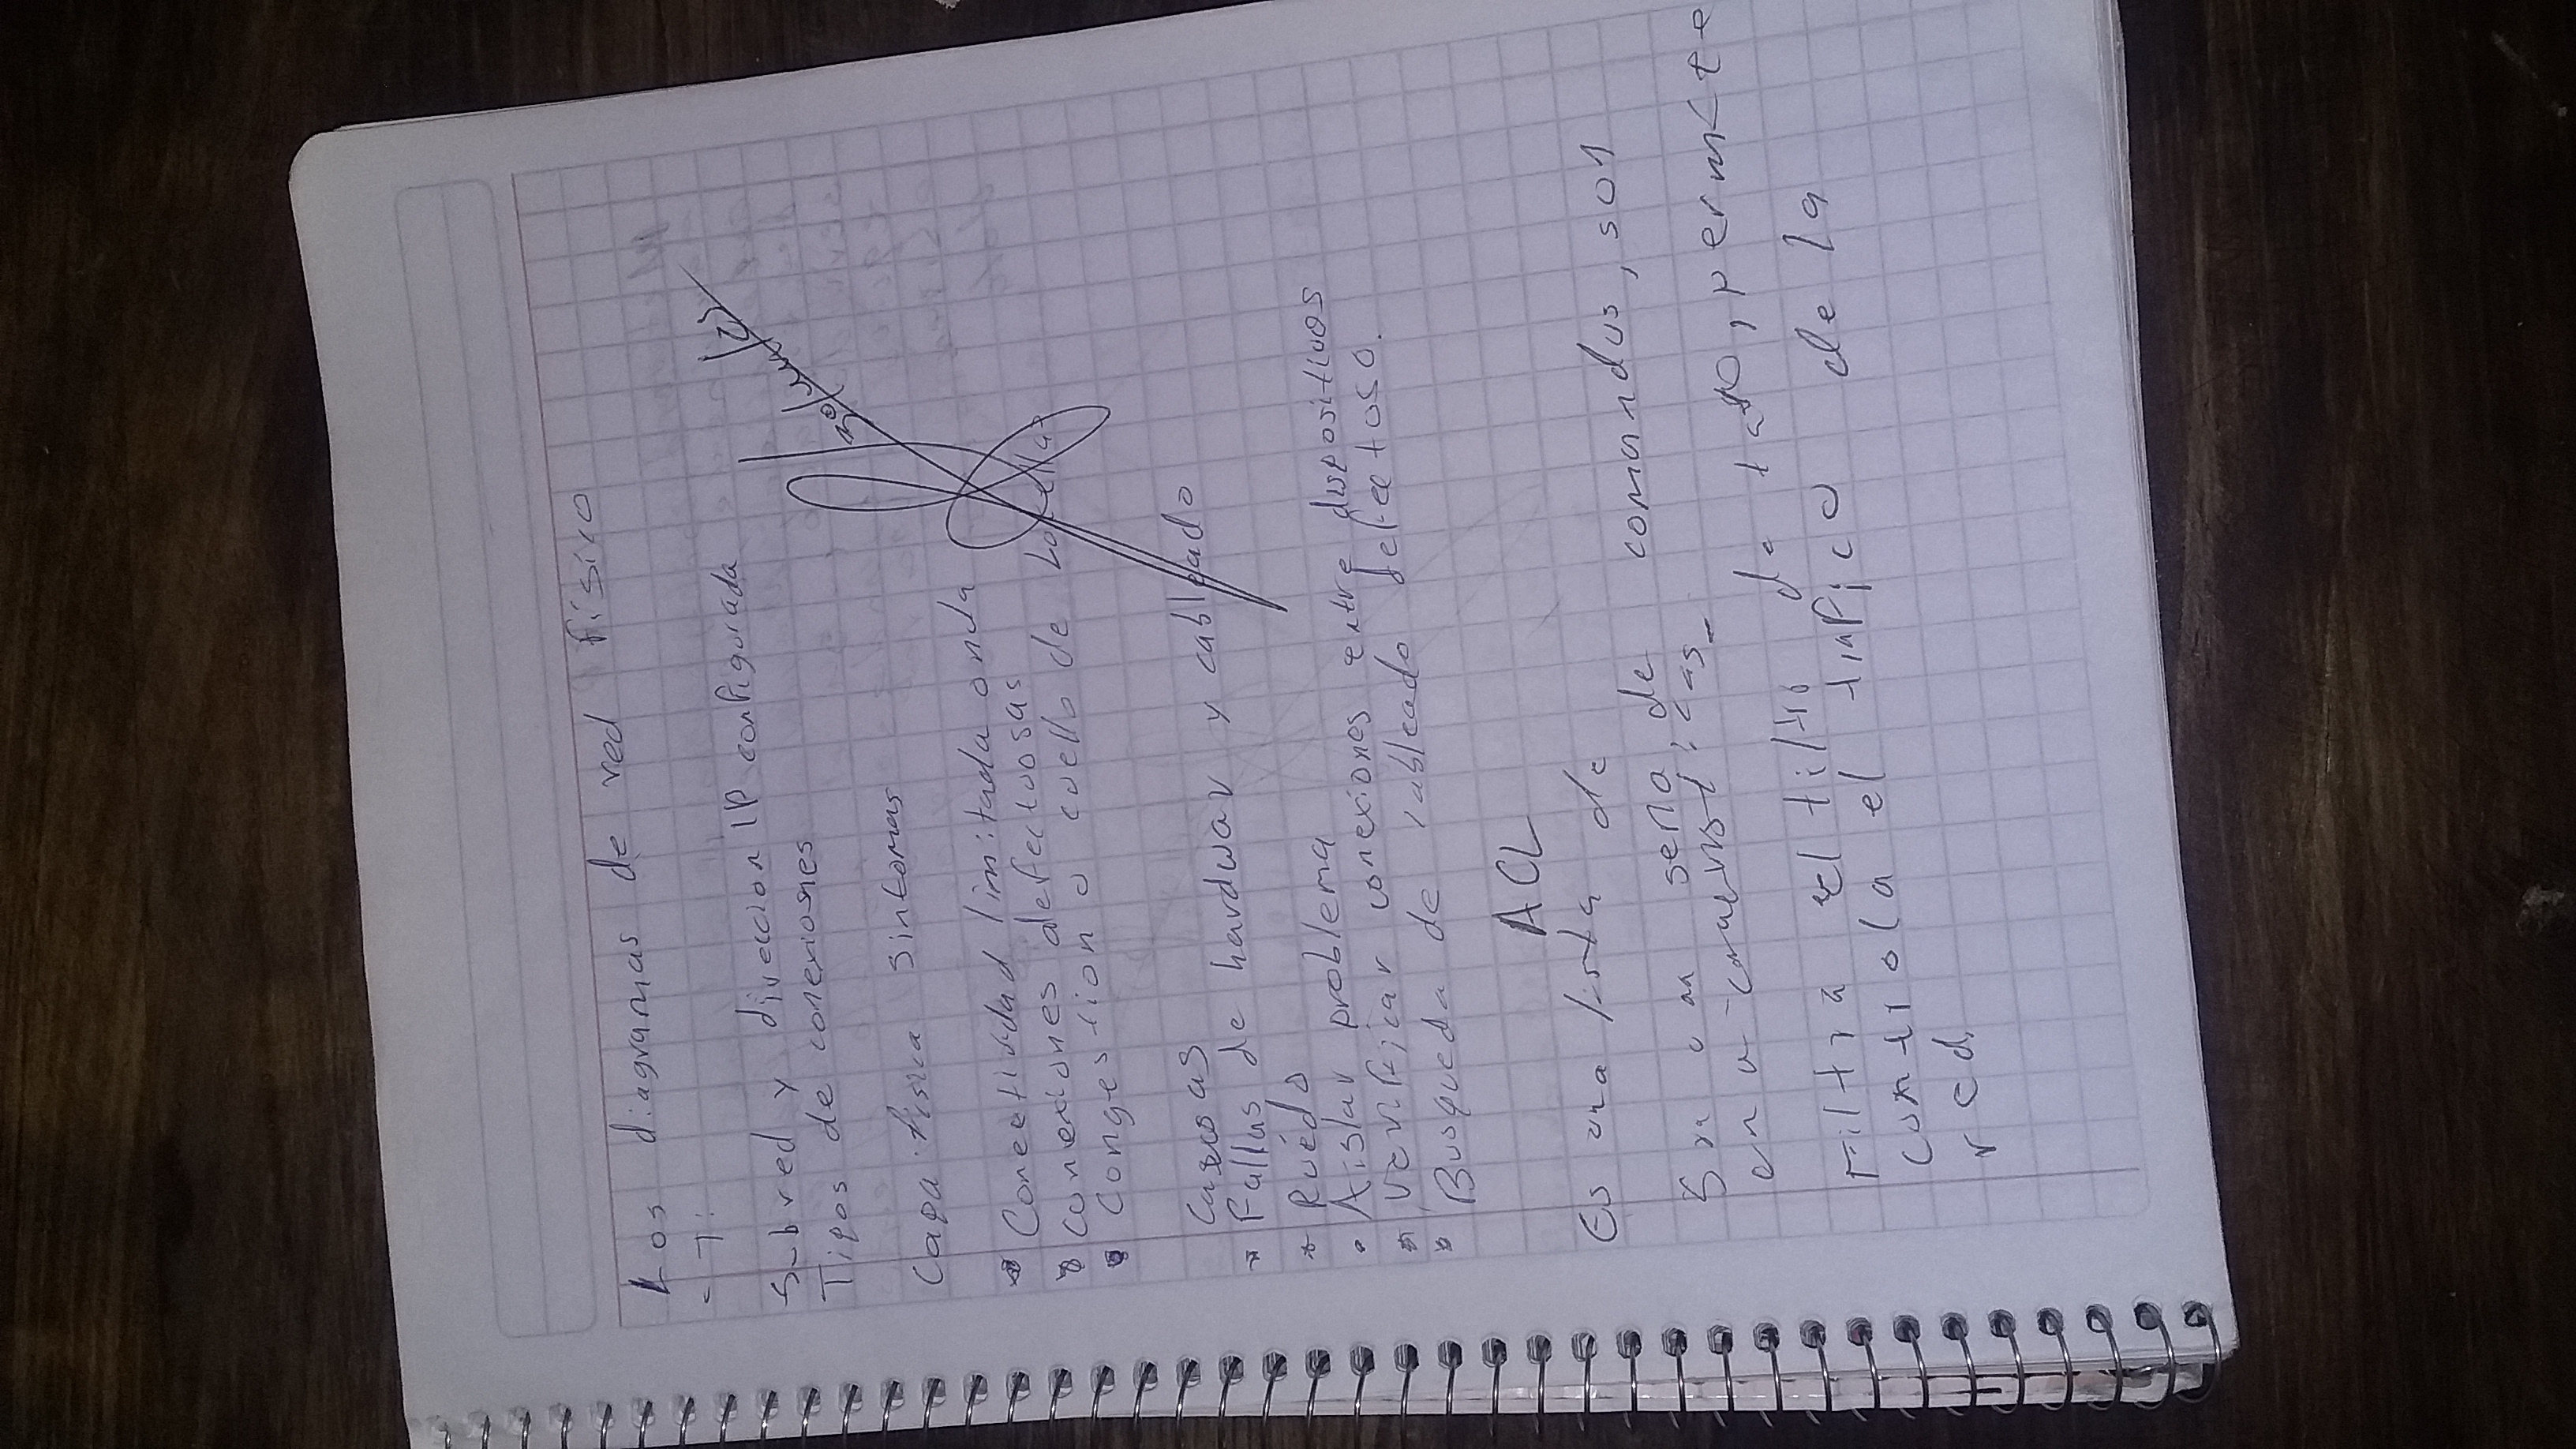 Los diagramas de red físico
- T:
Subred y direccion IP configurada
Tipos de conexiones
Capa física sintomas
* Conectividad limitada onda
* Conexiones defectuosas
* Congestion o cuello de botellas
Casuas
* Fallas de hardwar y cableado
* Ruédo
* Aislar problema
* Verificar conexiones entre dispositivos
* Busqueda de cableado defectoso.
ACL
Es una lista de
de comandos, son
Filtra el filtro de permite
controla el trafico de la
red